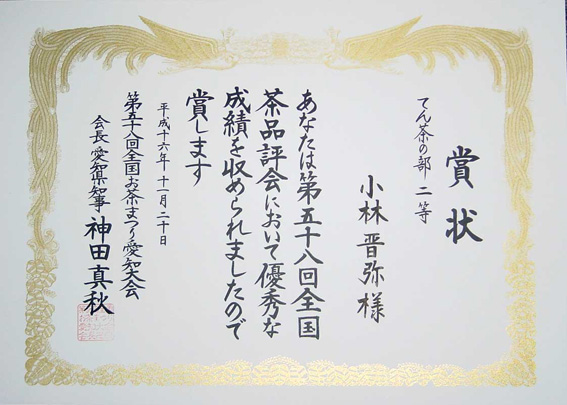 賞状
てん茶の部 二等
小林晋弥様
あなたは第五十八回全国
茶品評会において優秀な
成績を収められましたので
賞します
平成十六年十一月二十日
第五十八回全国お茶まつり愛知大会
会長 愛知県知事 神田真秋